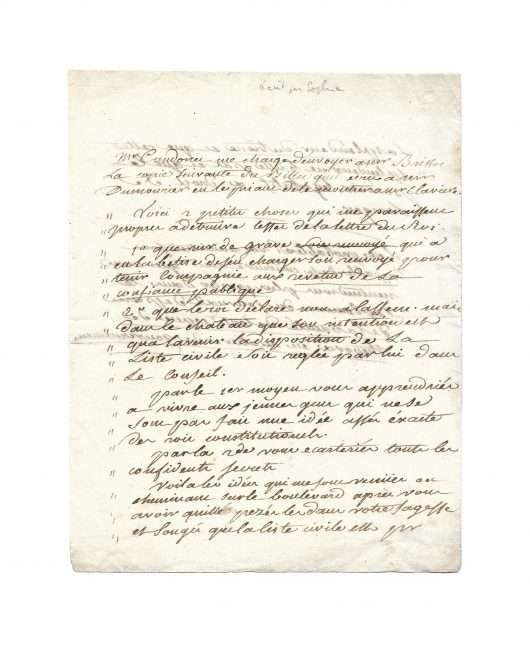 écrit par Sophie
Mr Condorcet me charge denvoyer a mr Brissot
La copie suivante du Billet qui ecrit a mr
Dumourier en le priant de le montrer a mr Claviere
" Voici 2 petites choses qui me paraissent
" propres a detruire leffet de la lettre du Roi.
" 1° que mr de grave soit renvoyé qui a
" eu la betise de se charger soit renvoyé pour
" tenir compagnie aux revetus de La
" confiance publique
" 2° que le roi déclare non a lassem. mais
" dans le chateau que son intention est
" que lavenir la disposition de La
" Liste civile soit reglée par lui dans
" Le Conseil.
" par le 1er moyen vous apprendriés
" a vivre aux jeunes gens qui ne se
" sont pas fait une idée assés éxacte
" des rois constitutionels.
" par la 2de vous ecarteriés touts les
" confidents secrets
" Voila les idées qui me sont venües en
" cheminant sur le boulevard apres vous
" avoir quitté pezés les dans votre sagesse
" et songés que la liste civile est pr